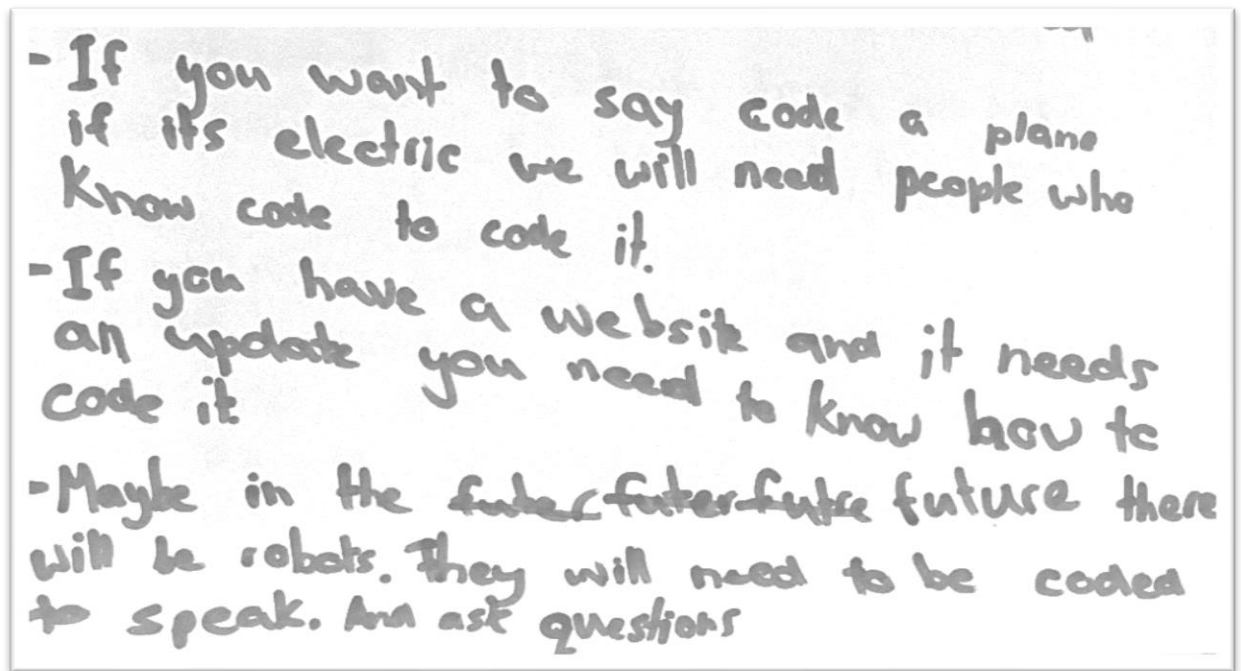 - If you want to say code a plane
if its electric we will need people who
know code to code it.
- If you have a website and it needs
an update you need to know how to
code it
- Maybe in the futer futer futre future there
will be robots. They will need to be coded
to speak. And ask questions